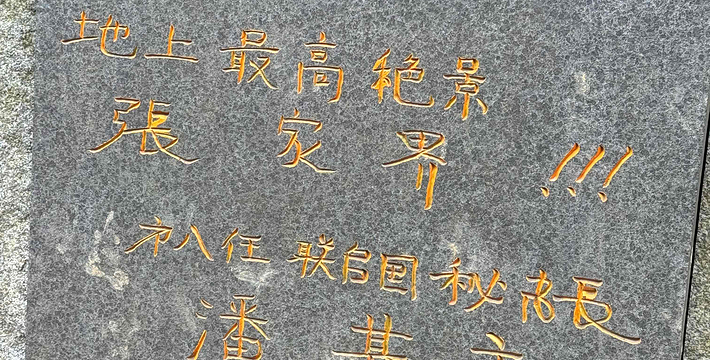 地上最高絶景
張家界!!!
㐧八任 联合国 秘书長
潘基